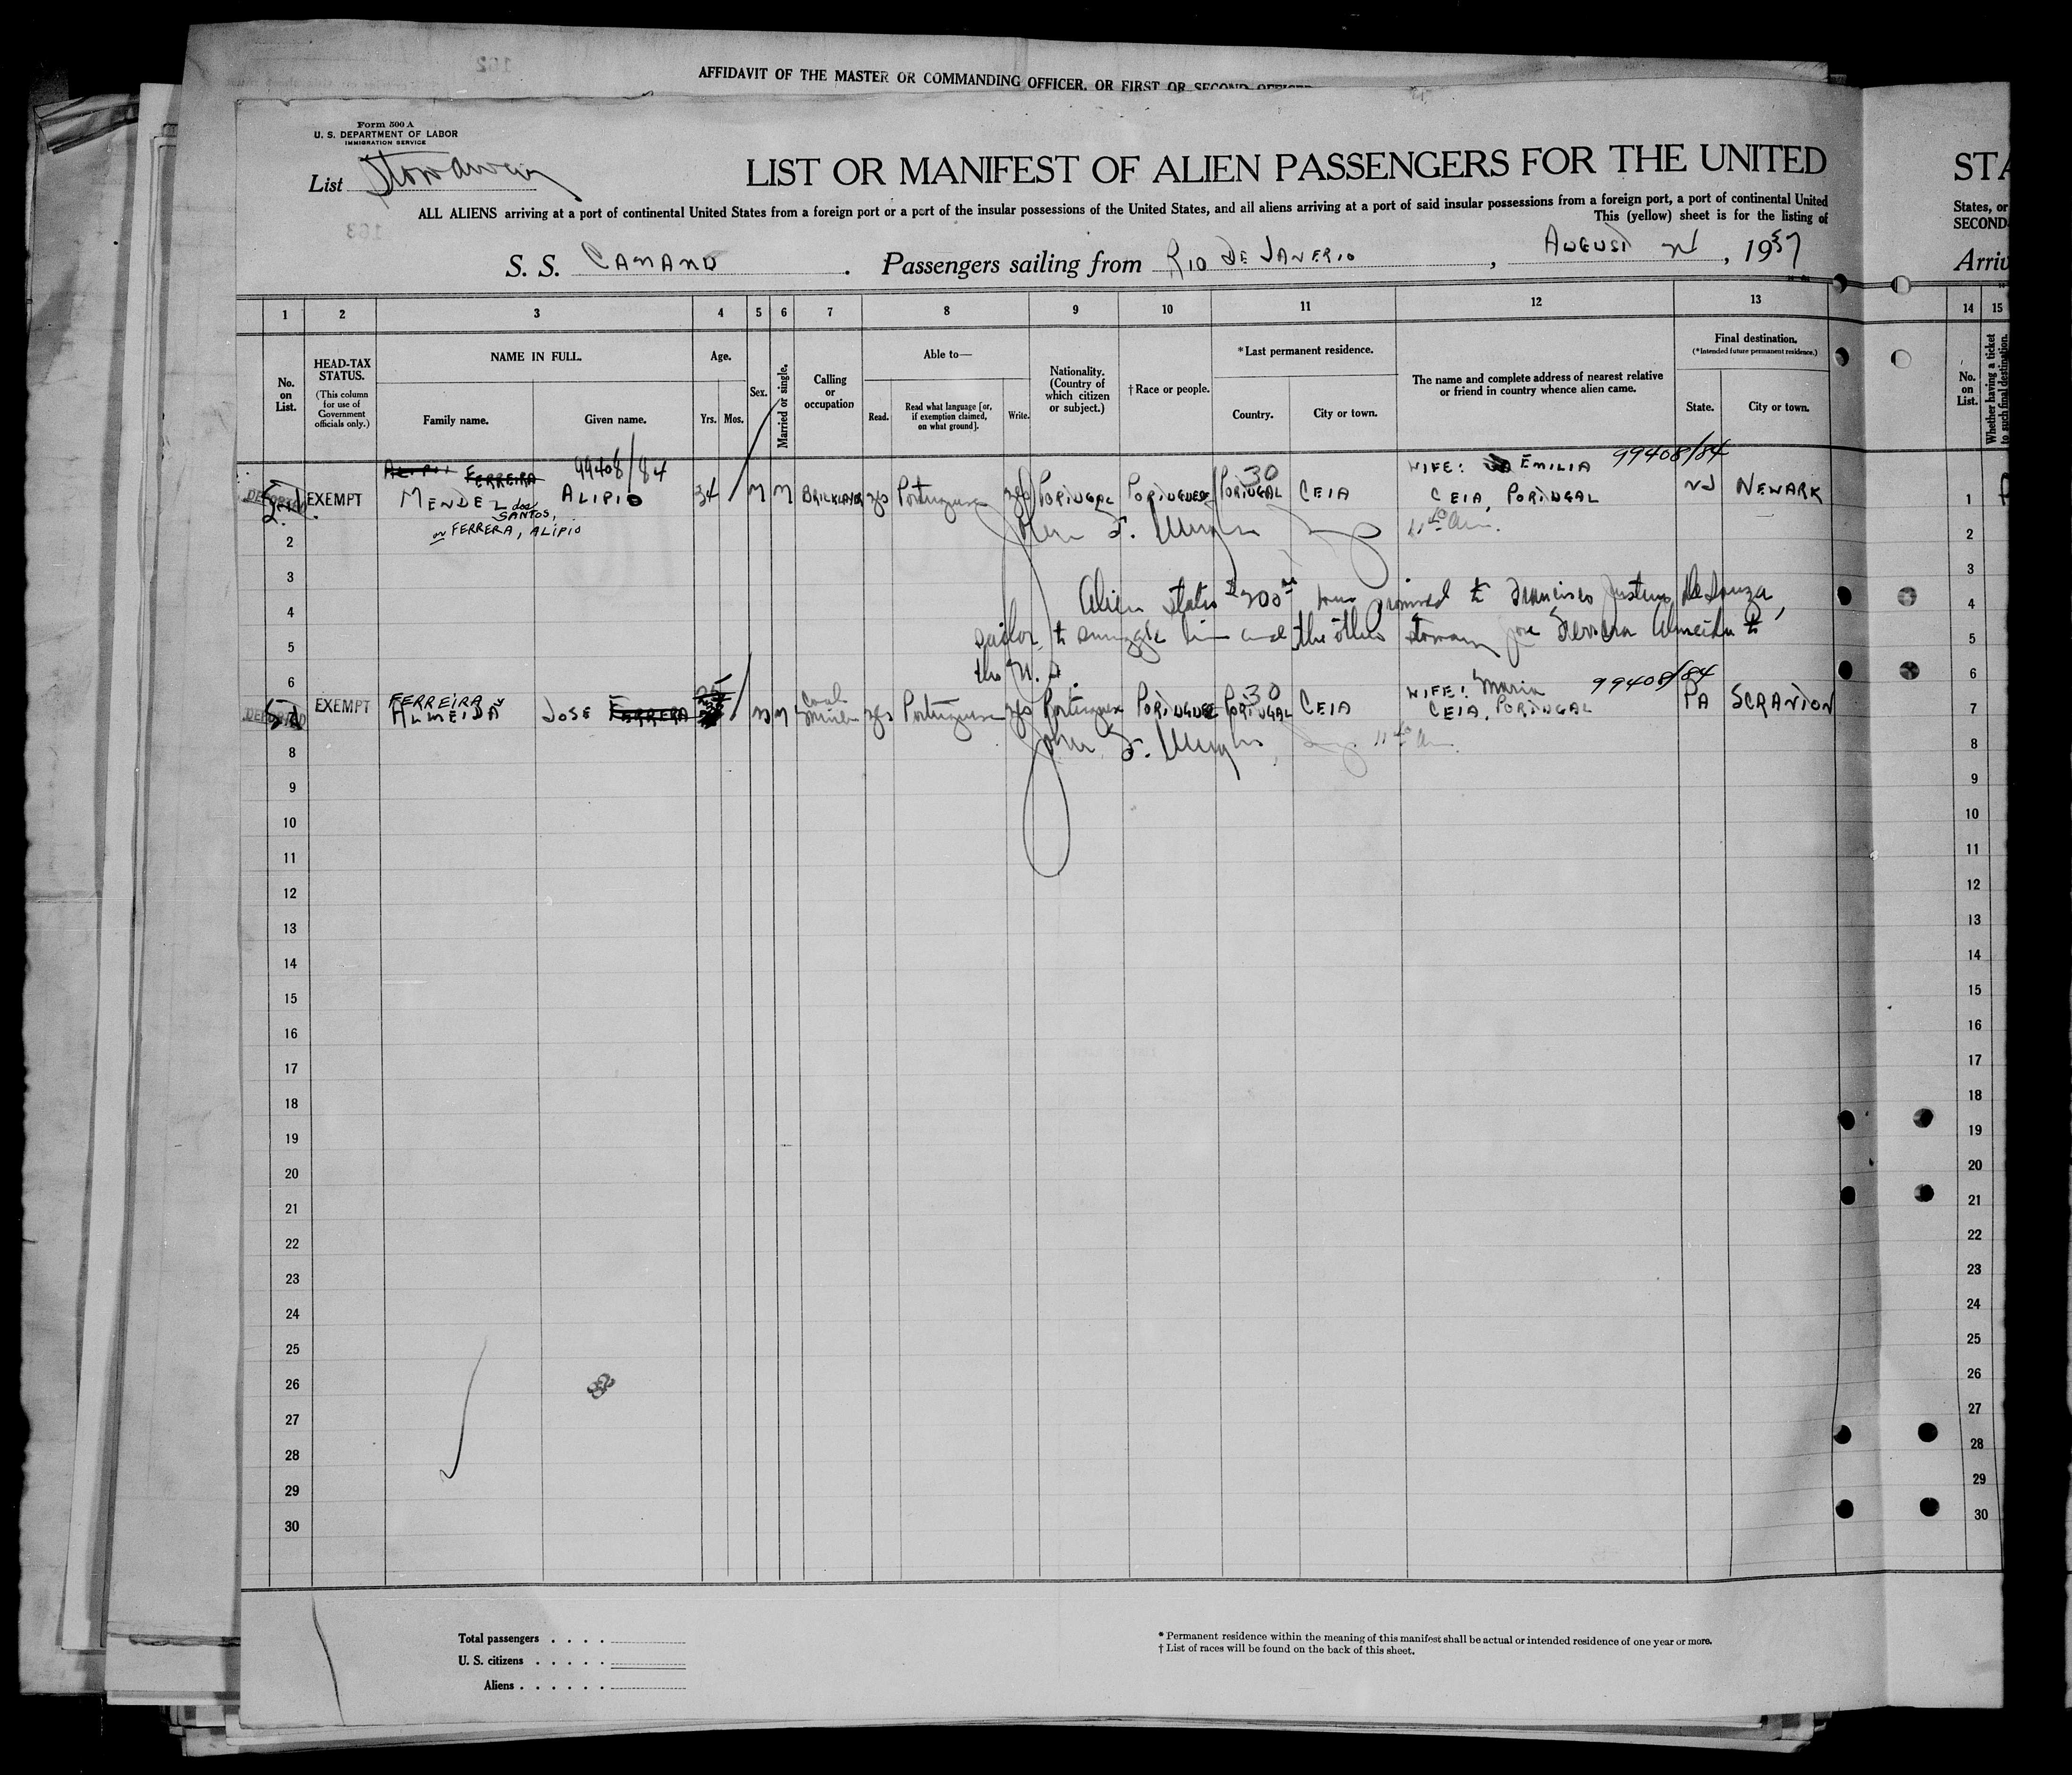 162
AFFIDAVIT OF THE MASTER OR COMMANDING OFFICER, OR FIRST OR SECOND OFFICER
Form 500 A
U. S. DEPARTMENT OF LABOR
IMMIGRATION SERVICE
List Stowaway
LIST OR MANIFEST OF ALIEN PASSENGERS FOR THE UNITED
STA
ALL ALIENS arriving at a port of continental United States from a foreign port or a port of the insular possessions of the United States, and all aliens arriving at a port of said insular possessions from a foreign port, a port of continental United
States, or
This (yellow) sheet is for the listing of
SECOND
163
S. S. CAMAMU. Passengers sailing from RIO DE JANERIO, AUGUST 1937
Arriv
1 2 3 4 5 6 7 8 9 10 11 12 13 14 15
No. on List.
HEAD-TAX STATUS.
(This column for use of Government officials only.)
NAME IN FULL.
Family name.
Given name.
Age.
Yrs. Mos.
Sex.
Married or single.
Calling or occupation
Able to—
Read.
Read what language [or, if exemption claimed, on what ground].
Write.
Nationality. (Country of which citizen or subject.)
†Race or people.
*Last permanent residence.
Country.
City or town.
The name and complete address of nearest relative or friend in country whence alien came.
Final destination.
(*Intended future permanent residence.)
State.
City or town.
No. on List.
Whether having a ticket to such final destination.
ALIPIO FERREIRA 99408/84
WIFE: EMILIA 99408/84
EXEMPT MENDEZ dos SANTOS, ALIPIO 34 M M BRICKLAYER yes Portuguese yes PORTUGAL PORTUGUESE PORTUGAL 30 CEIA CEIA, PORTUGAL NJ NEWARK 1
or FERRERA, ALIPIO
2 2
3 3
Alien states $200 was promised to Francisco Justino De Souza,
4 4
sailor, to smuggle him and the other stowaway Jose Ferreira Almeida to
5 5
the U. S.
6 6
WIFE: Maria 99408/84
DEPORTED EXEMPT FERREIRA ALMEIDA JOSE FERRERA M M Coal Miner yes Portuguese yes Portuguese PORTUGUESE PORTUGAL 30 CEIA CEIA, PORTUGAL PA SCRANTON 7
8 8
9 9
10 10
11 11
12 12
13 13
14 14
15 15
16 16
17 17
18 18
19 19
20 20
21 21
22 22
23 23
24 24
25 25
26 26
27 27
28 28
29 29
30 30
Total passengers . . . .
U. S. citizens . . . . .
Aliens . . . . . .
* Permanent residence within the meaning of this manifest shall be actual or intended residence of one year or more.
† List of races will be found on the back of this sheet.